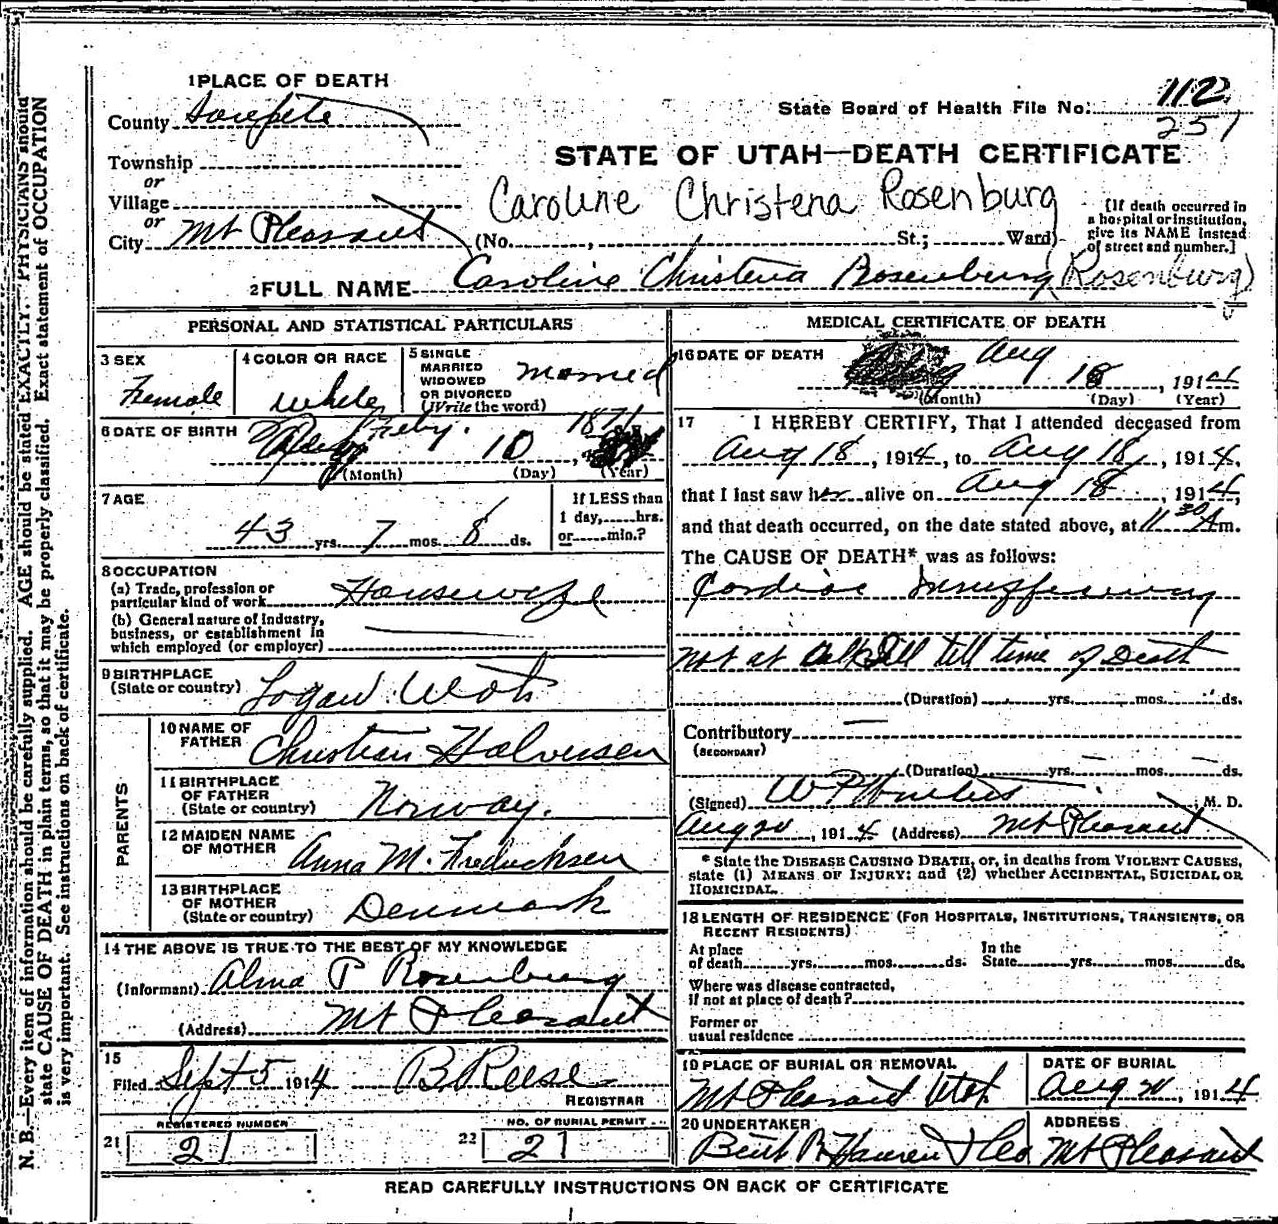 N. B.—Every item of information should be carefully supplied. AGE should be stated EXACTLY. PHYSICIANS should
state CAUSE OF DEATH in plain terms, so that it may be properly classified. Exact statement of OCCUPATION
is very important. See instructions on back of certificate.
1 PLACE OF DEATH
County Sanpete
Township
or
Village
or
City Mt Pleasant
State Board of Health File No. 112
257
STATE OF UTAH—DEATH CERTIFICATE
Caroline Christena Rosenburg
(No. , St.; Ward)
[If death occurred in
a hospital or institution,
give its NAME instead
of street and number.]
2 FULL NAME Caroline Christena Rosenburg (Rosenburg)
PERSONAL AND STATISTICAL PARTICULARS
3 SEX
Female
4 COLOR OR RACE
White
5 SINGLE
MARRIED
WIDOWED
OR DIVORCED
(Write the word)
Married
6 DATE OF BIRTH
Feby. 10, 1871
(Month) (Day) (Year)
7 AGE
43 yrs. 7 mos. 8 ds.
If LESS than
1 day, hrs.
or min.?
8 OCCUPATION
(a) Trade, profession or
particular kind of work Housewife
(b) General nature of industry,
business, or establishment in
which employed (or employer)
9 BIRTHPLACE
(State or country) Logan Utah
PARENTS
10 NAME OF
FATHER Christian Halversen
11 BIRTHPLACE
OF FATHER
(State or country) Norway.
12 MAIDEN NAME
OF MOTHER Anna M. Fredricksen
13 BIRTHPLACE
OF MOTHER
(State or country) Denmark
14 THE ABOVE IS TRUE TO THE BEST OF MY KNOWLEDGE
(Informant) Alma P Rosenburg
(Address) Mt Pleasant
15
Filed Sept 5 1914 B Reese
REGISTRAR
21 REGISTERED NUMBER
21
22 NO. OF BURIAL PERMIT
21
MEDICAL CERTIFICATE OF DEATH
16 DATE OF DEATH
Aug 18, 1914
(Month) (Day) (Year)
17 I HEREBY CERTIFY, That I attended deceased from
Aug 18, 1914, to Aug 18, 1914,
that I last saw her alive on Aug 18, 1914,
and that death occurred, on the date stated above, at 11 30 A m.
The CAUSE OF DEATH* was as follows:
Cardiac Insufficiency
Not at all Ill till time of Death
(Duration) yrs. mos. ds.
Contributory
(SECONDARY)
(Duration) yrs. mos. ds.
(Signed) M. D.
Aug 20, 1914 (Address) Mt Pleasant
* State the DISEASE CAUSING DEATH, or, in deaths from VIOLENT CAUSES,
state (1) MEANS OF INJURY; and (2) whether ACCIDENTAL, SUICIDAL OR
HOMICIDAL.
18 LENGTH OF RESIDENCE (FOR HOSPITALS, INSTITUTIONS, TRANSIENTS, OR
RECENT RESIDENTS)
At place
of death yrs. mos. ds.
In the
State yrs. mos. ds.
Where was disease contracted,
if not at place of death?
Former or
usual residence
19 PLACE OF BURIAL OR REMOVAL
Mt Pleasant Utah
DATE OF BURIAL
Aug 20, 1914
20 UNDERTAKER
Bent R Hansen
ADDRESS
Mt Pleasant
READ CAREFULLY INSTRUCTIONS ON BACK OF CERTIFICATE